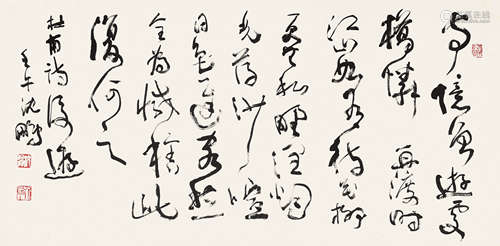 寺憶曾遊處
橋憐再渡時
江山如有待花柳
更無私野潤烟
光薄沙暄
日色遲客愁
全為減捨此
復何之
杜甫詩後遊
壬午沈鵬